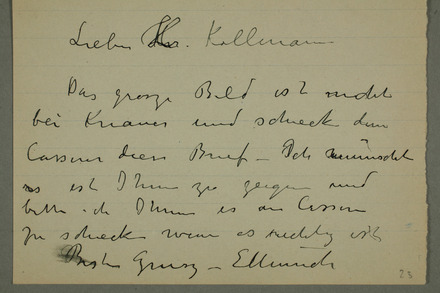 Lieber Hr. Kollmann
Das grosze Bild ist nicht
bei Knauer und schick dem
Cassirer diesen Brief – Ich wünscht
es ist Ihnen zu zeigen und
bitte ich Ihnen es an Cassirer
zu schicken wenn es richtig ist
Besten Grusz –
25